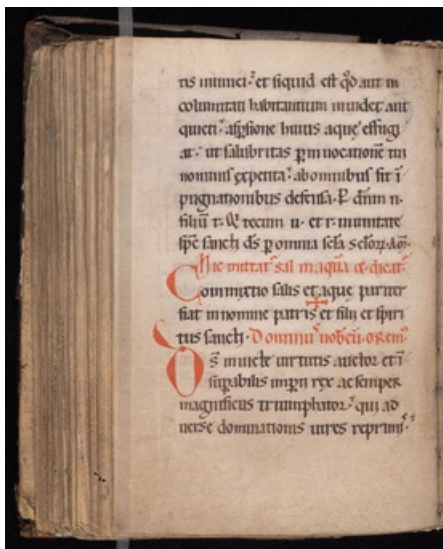 tis inimici. et siquid est qd aut in
columitati habitantium inuidet aut
quieti. asp̄sione huius aque effugi
at. ut salubritas p̄ inuocationē tui
nominis expetita. ab omnibus sit ī
pugnationibus defensa. P̄ dn̄m n.
filiū t. Q̄ tecum u. et r. in unitate
sp̄c sancti d̄s p̄ omnia sc̄la sc̄loꝝ. Am̄.
Hic mittat᷑ sal in aquā & dicat᷑
Commixtio salis et aque pariter
fiat in nomine patris ✝ et filii et spiri
tus sancti. Dominus uobiscū. oremꝰ
Ds̄ inuicte uirtutis auctor et ī
sup̄abilis imp̄ii rex ac semper
magnificus triumphator. qui ad
uerse dominationis uires reprimis.